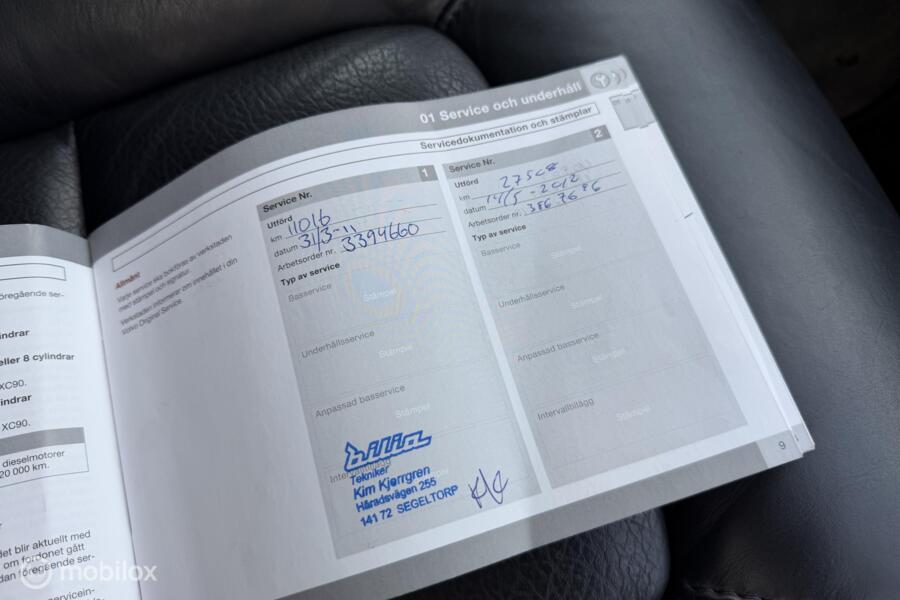 01 Service och underhåll
Servicedokumentation och stämplar
Allmänt
Varje service ska bokföras av verkstaden
med stämpel och signatur.
Verkstaden informerar om innehållet i din
Volvo Original Service.
Service Nr.
1
Utförd
km 11016
datum 31/3-11
Arbetsorder nr. 3394660
Typ av service
Basservice
Stämpel
Underhållsservice
Stämpel
Anpassad basservice
Stämpel
bilia
Tekniker
Kim Kjerrgren
Häradsvägen 255
141 72 SEGELTORP
Service Nr.
2
Utförd
km
datum
Arbetsorder nr. 3867686
Typ av service
Basservice
Stämpel
Underhållsservice
Stämpel
Anpassad basservice
Stämpel
Intervallbilägg
Stämpel
9
öregående ser-
indrar
eller 8 cylindrar
XC90.
indrar
XC90.
dieselmotorer
20 000 km.
det blir aktuellt med
om fordonet gått
dan föregående ser-
mobilox